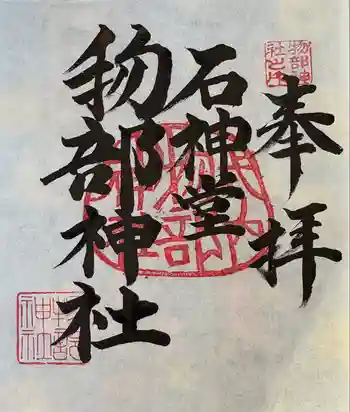 奉拝
物部神
社之印
石神堂
物部神社
物部
神社